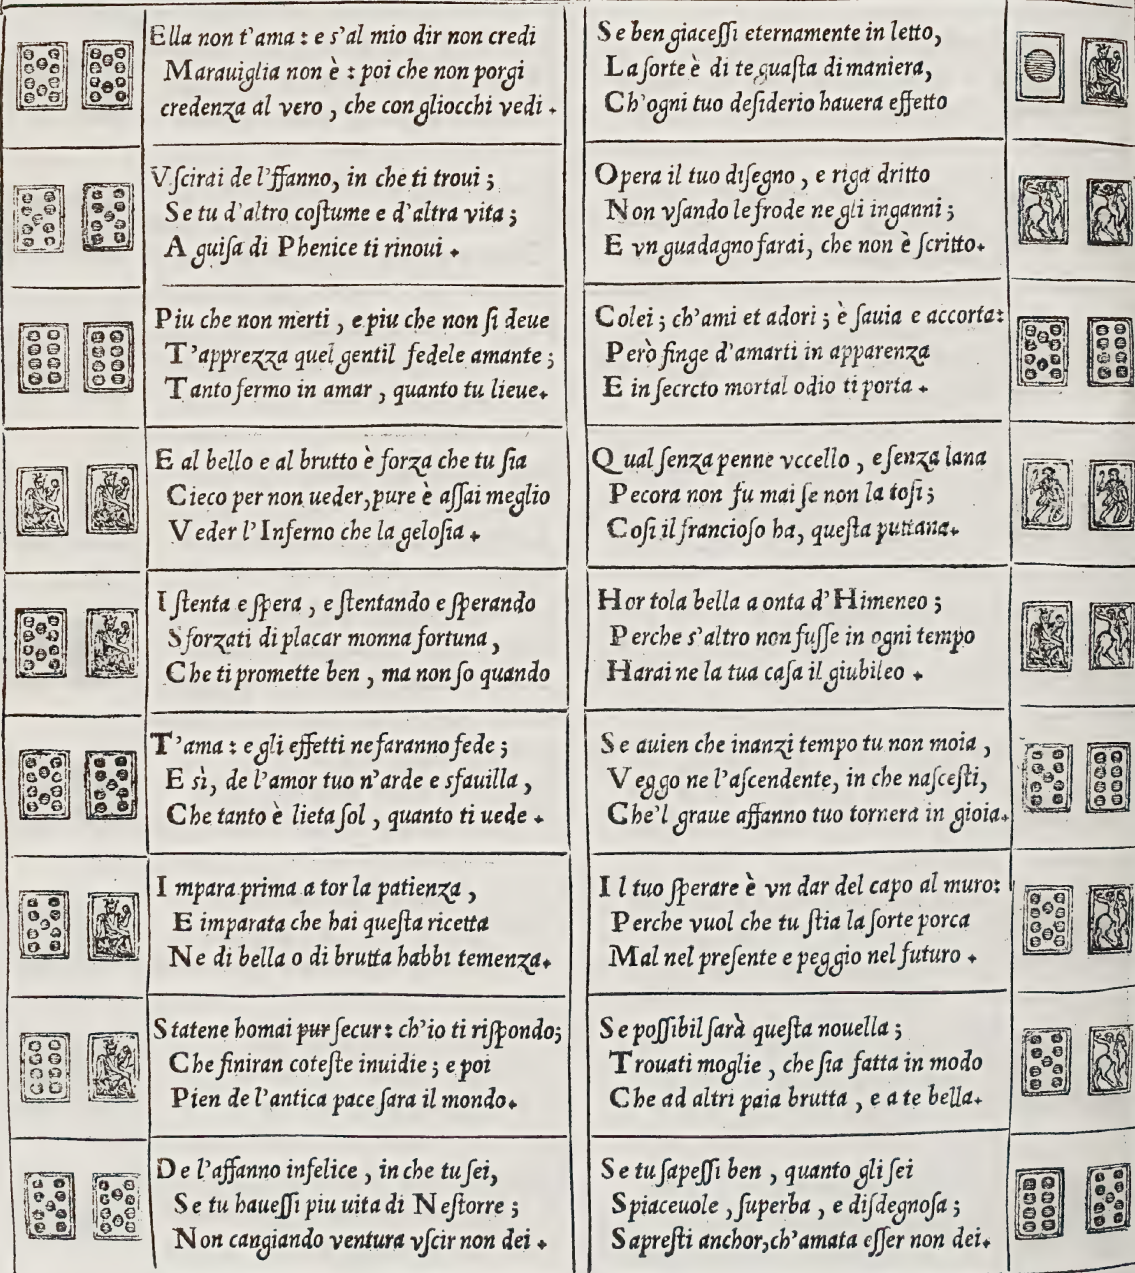 Ella non t'ama : e s'al mio dir non credi
Marauiglia non è : poi che non porgi
credenza al vero , che con gliocchi vedi .
Vſcirai de l'ffanno, in che ti troui ;
Se tu d'altro coſtume e d'altra vita ;
A guiſa di Phenice ti rinoui .
Piu che non merti , e piu che non ſi deue
T'apprezza quel gentil fedele amante ;
Tanto fermo in amar , quanto tu lieue.
E al bello e al brutto è forza che tu ſia
Cieco per non ueder, pure è aſſai meglio
Veder l'Inferno che la geloſia .
Iſtenta e ſpera , e ſtentando e ſperando
Sforzati di placar monna fortuna ,
Che ti promette ben , ma non ſo quando
T'ama : e gli effetti ne faranno fede ;
E sì, de l'amor tuo n'arde e sfauilla ,
Che tanto è lieta ſol , quanto ti uede .
Impara prima a tor la patienza ,
E imparata che hai queſta ricetta
Ne di bella o di brutta habbi temenza.
Statene homai pur ſecur : ch'io ti riſpondo;
Che finiran coteſte inuidie ; e poi
Pien de l'antica pace ſara il mondo.
De l'affanno infelice , in che tu ſei,
Se tu haueſſi piu uita di Neſtorre ;
Non cangiando ventura vſcir non dei .
Se ben giaceſſi eternamente in letto,
La ſorte è di te guaſta di maniera,
Ch'ogni tuo deſiderio hauera effetto
Opera il tuo diſegno , e riga dritto
Non vſando le frode ne gli inganni ;
E vn guadagno farai, che non è ſcritto.
Colei ; ch'ami et adori ; è ſauia e accorta:
Però finge d'amarti in apparenza
E in ſecreto mortal odio ti porta .
Qual ſenza penne vccello , e ſenza lana
Pecora non fu mai ſe non la toſi ;
Coſi il francioſo ha, queſta puttana.
Hor tola bella a onta d'Himeneo ;
Perche s'altro non fuſſe in ogni tempo
Harai ne la tua caſa il giubileo .
Se auien che inanzi tempo tu non moia ,
Veggo ne l'aſcendente, in che naſceſti,
Che'l graue affanno tuo tornera in gioia.
Il tuo ſperare è vn dar del capo al muro:
Perche vuol che tu ſtia la ſorte porca
Mal nel preſente e peggio nel futuro .
Se poſſibil ſarà queſta nouella ;
Trouati moglie , che ſia fatta in modo
Che ad altri paia brutta , e a te bella.
Se tu ſapeſſi ben , quanto gli ſei
Spiaceuole , ſuperba , e diſdegnoſa ;
Sapreſti anchor, ch'amata eſſer non dei.